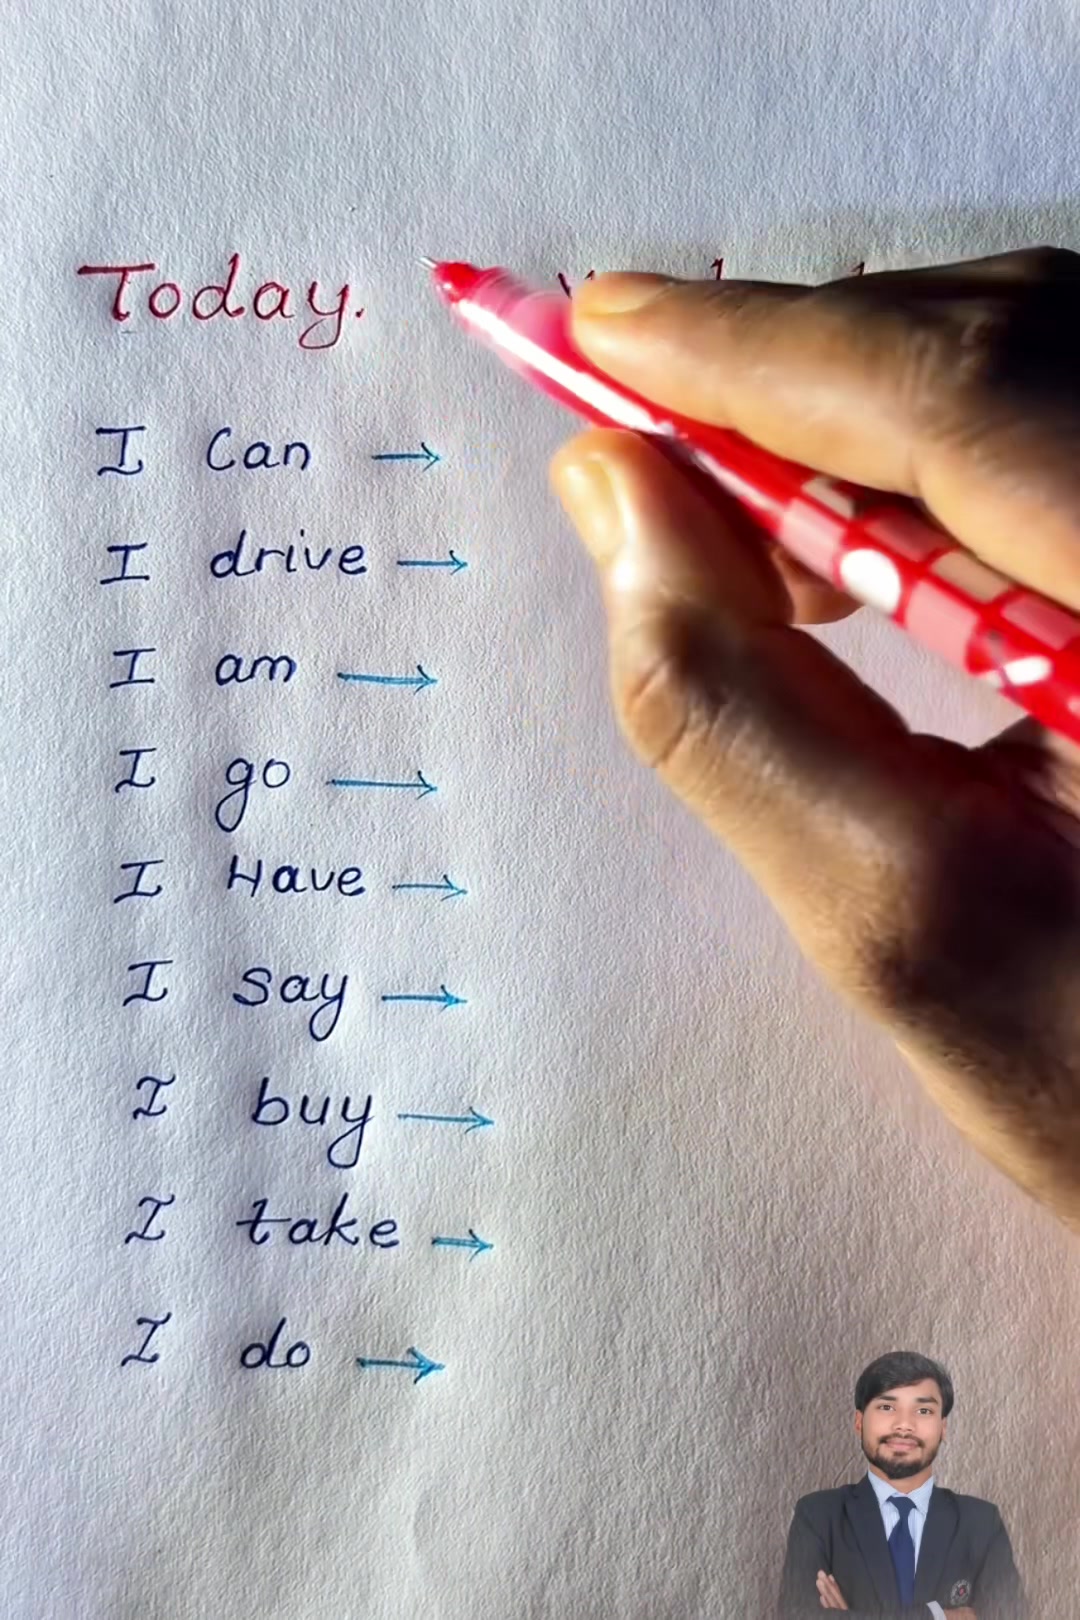 Today.
I Can →
I drive →
I am →
I go →
I Have →
I say →
I buy →
I take →
I do →